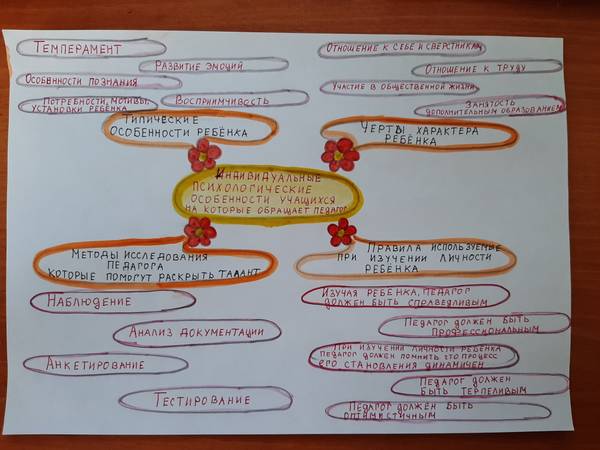 Темперамент
Развитие эмоций
Особенности познания
Потребности, мотивы,
установки ребёнка
Восприимчивость
Типические
особенности ребёнка
Отношение к себе и сверстникам
Отношение к труду
Участие в общественной жизни
Занятость
дополнительным образованием
Черты характера
ребёнка
Индивидуальные
психологические
особенности учащихся
на которые обращает педагог
Методы исследования
педагога
которые помогут раскрыть талант
Наблюдение
Анализ документации
Анкетирование
Тестирование
Правила используемые
при изучении личности
ребёнка
Изучая ребёнка, педагог
должен быть справедливым
Педагог должен быть
профессиональным
При изучении личности ребёнка
педагог должен помнить что процесс
его становления динамичен
Педагог должен
быть терпеливым
Педагог должен быть
оптимистичным